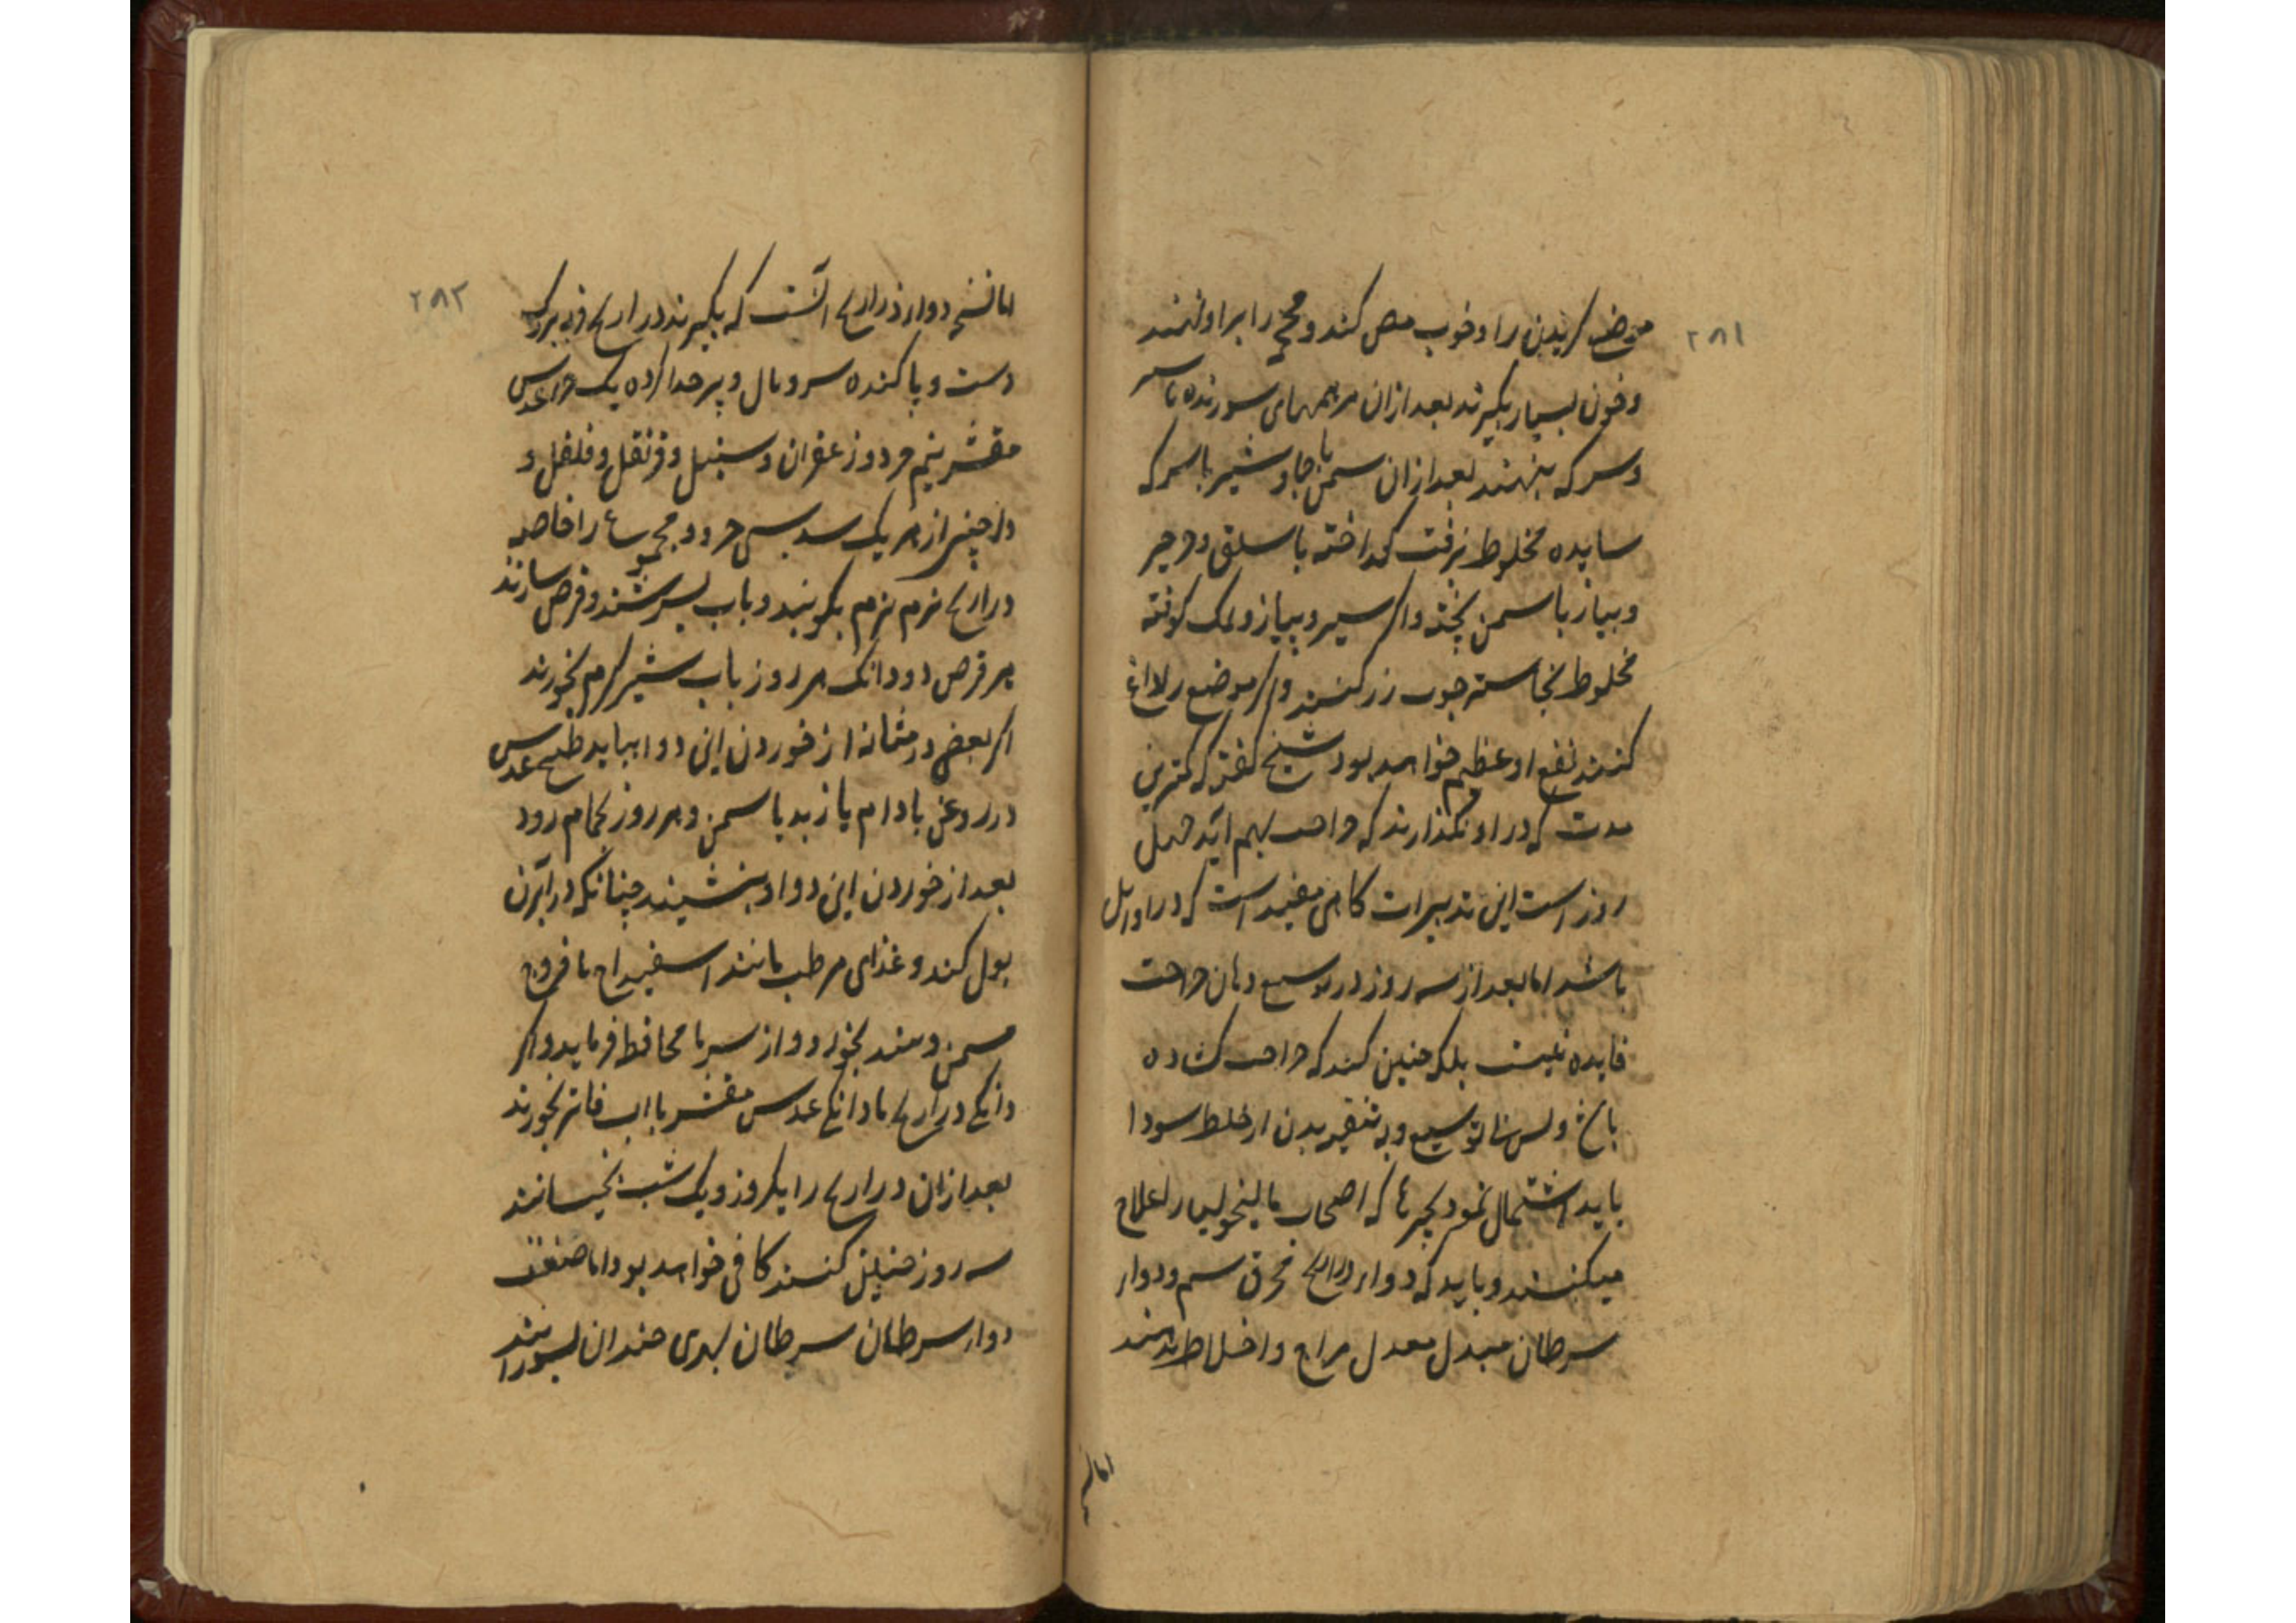 ۲۸۱
موضع کزیدن را و خوب مص کند و محجمه را بر او نهند
و خون بسیار بکیرند بعد ازان مرهمهای سوزنده با سیر
و سرکه بنهند بعد ازان سمن با جاوشیر با سرکه
ساییده مخلوط بزفت کداخته با سلق و جرجیر
و پیاز با سمن پخته و اکر سیر و پیاز و نمک کوفته
مخلوط چوب رز کنند و اکر موضع را داغ
کنند نفع او عظیم خواهد بود شیخ کفته که کمترین
مدت که در او نکذارند که جراحت بهم آید چهل
روز است این تدبیرات کاهی مفید است که در اوایل
باشد اما بعد از سه روز در توسیع دهان جراحت
فایده نیست بلکه چنین کند که جراحت کشاده
باشد توسیع و به تنقیه بدن از خلط سودا
باید اشتمال نمود بچیزها که اصحاب مالیخولیا را علاج
میکنند و باید که دواء ذراریح محرق سم و دواء
سرطان مبدل معدل مزاج و اخلاط بدهند
اما نسخه
۲۸۲
اما نسخه دواء ذراریح آنست که بکیرند ذراریح فربه بزرک
دست و پا کنده سر و بال و پر جدا کرده یک جزء عدس
مقشر نیم جزو زعفران و سنبل و قرنفل و فلفل و
دارچینی از هر یک سدس جزو و مجموع را خاصه
ذراریح نرم نرم بکوبند و باب بسرشند و قرص سازند
هر قرص دو دانک هر روز باب شیر کرم بخورند
اکر بعضی در مثانه از خوردن این دوا بیاید طبیخ عدس
در روغن بادام یا زبد یا سمن و هر روز بحمام رود
بعد از خوردن این دوا و بنشیند چنانکه در آبزن
بول کند و غذای مرطب مانند اسفیداج با فروج
مسمن و بخورد و از سرما محافظه فرماید و اکر
دانکی ذراریح با دانکی عدس مقشر با اب فاتر بخورند
بعد ازان ذراریح را یکروز و یک شب بخیسانند
سه روز چنین کنند کافی خواهد بود اما صنعت
دواء سرطان سرطان نهری چندان بسوزانند